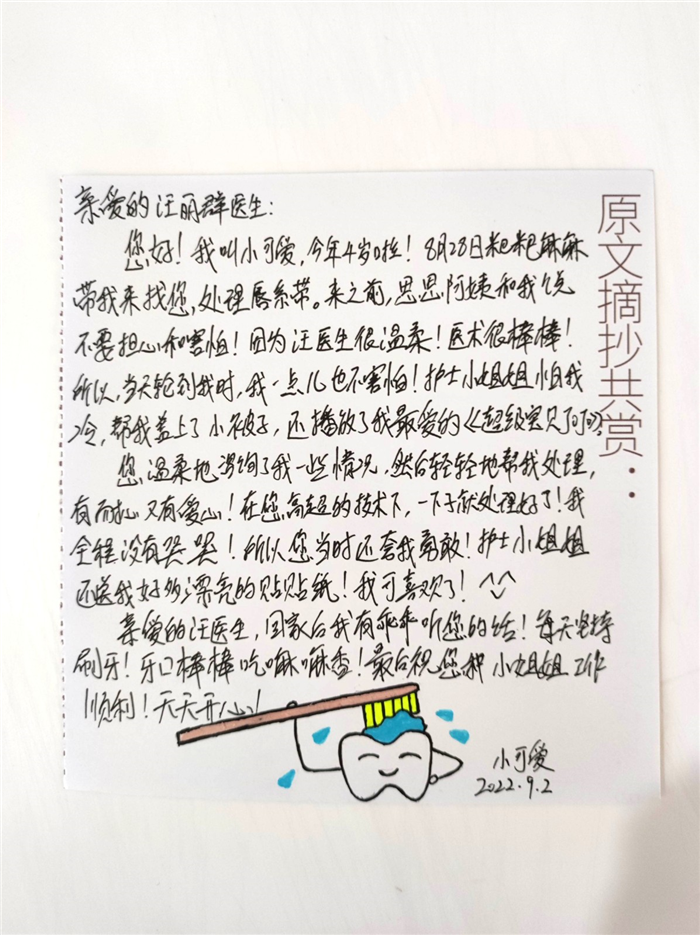 亲爱的汪丽群医生:
您好!我叫小可爱,今年4岁啦!8月28日粑粑麻麻
带我来找您,处理唇系带。来之前,思思阿姨和我说
不要担心和害怕!因为汪医生很温柔!医术很棒棒!
所以,当天轮到我时,我一点儿也不害怕!护士小姐姐怕我
冷,帮我盖上了小被子,还播放了我最爱的《超级宝贝JOJO》。
您温柔地询问了我一些情况,然后轻轻地帮我处理,
有耐心又有爱心!在您高超的技术下,一下子就处理好了!我
全程没有哭哭!所以您当时还夸我勇敢!护士小姐姐
还送我好多漂亮的贴贴纸!我可喜欢了!^^
亲爱的汪医生,回家后我有乖乖听您的话!每天坚持
刷牙!牙口棒棒吃嘛嘛香!最后祝您和小姐姐工作
顺利!天天开心!
小可爱
2022.9.2
原文摘抄共赏: